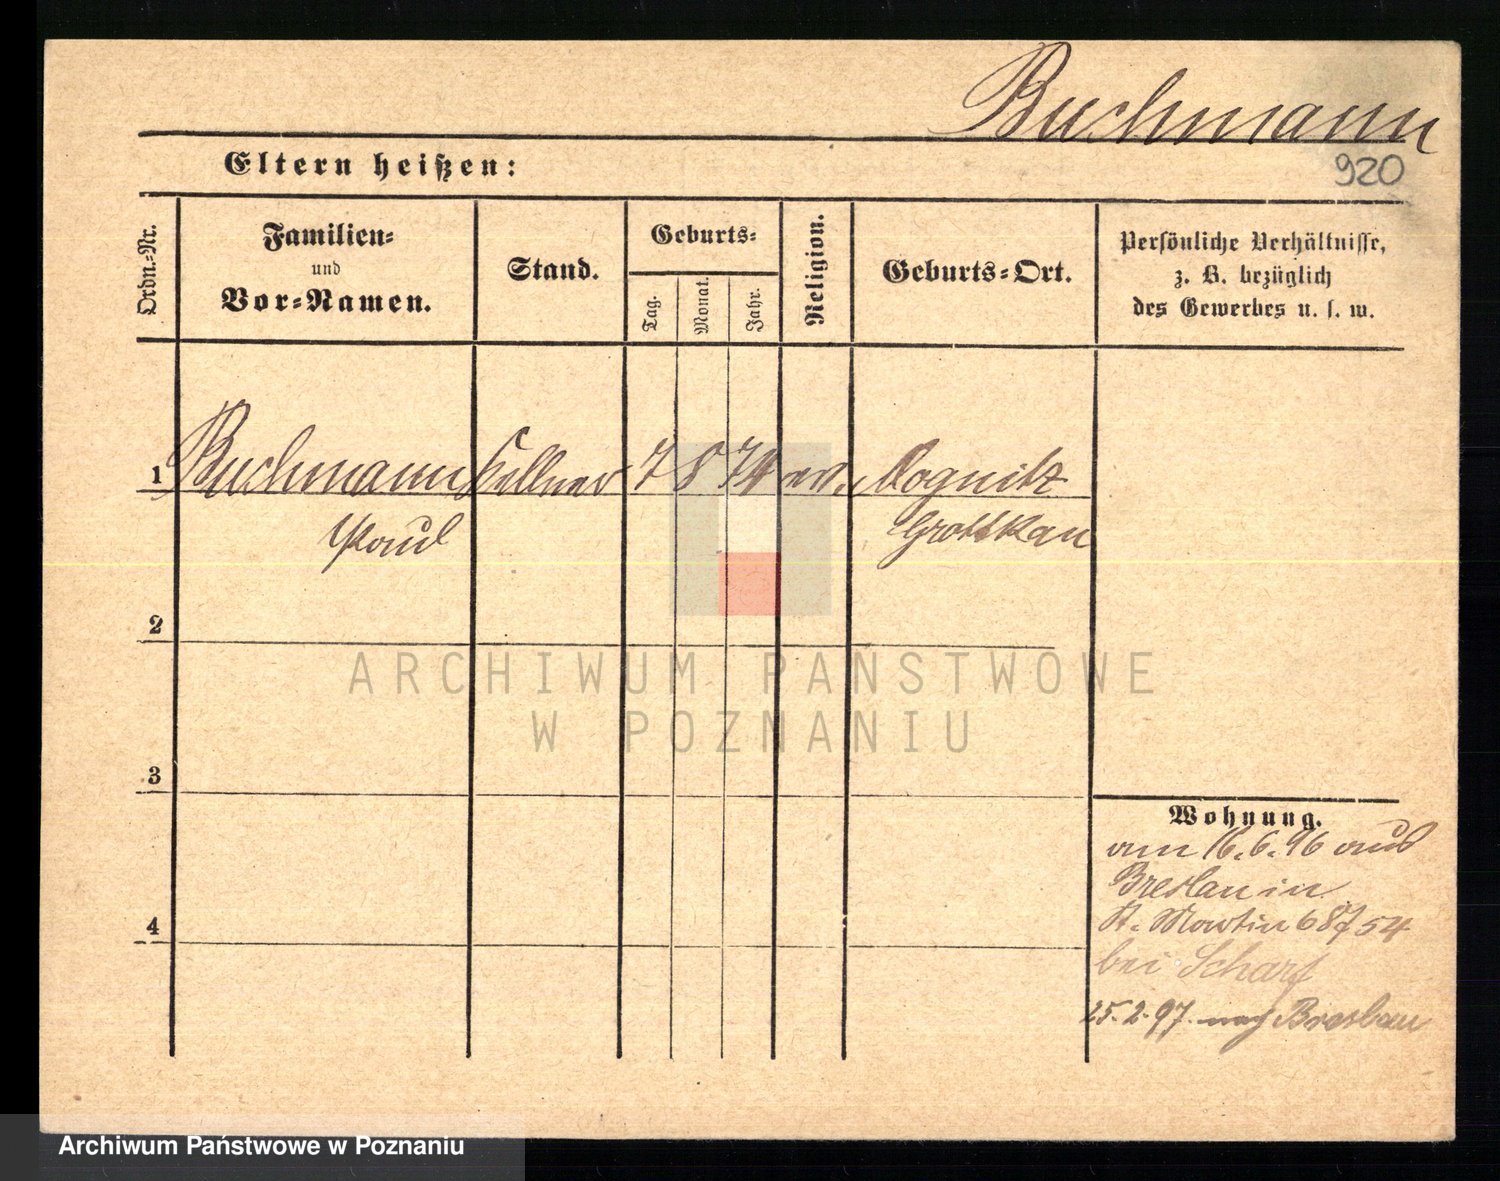 Buchmann
920
Eltern heißen:
Ordn.-Nr.
Familien-
und
Vor-Namen.
Stand.
Geburts-
Tag.
Monat.
Jahr.
Religion.
Geburts-Ort.
Persönliche Verhältnisse,
z. B. bezüglich
des Gewerbes u. s. w.
1 Buchmann Kellner 7 8 74 ev. Rognitz
Paul Grottkau
2
3
4
Wohnung.
am 16.6.96 aus
Breslau in
St. Martin 68
bei Scharf
25.2.97. nach Breslau
ARCHIWUM PAŃSTWOWE
W POZNANIU
Archiwum Państwowe w Poznaniu